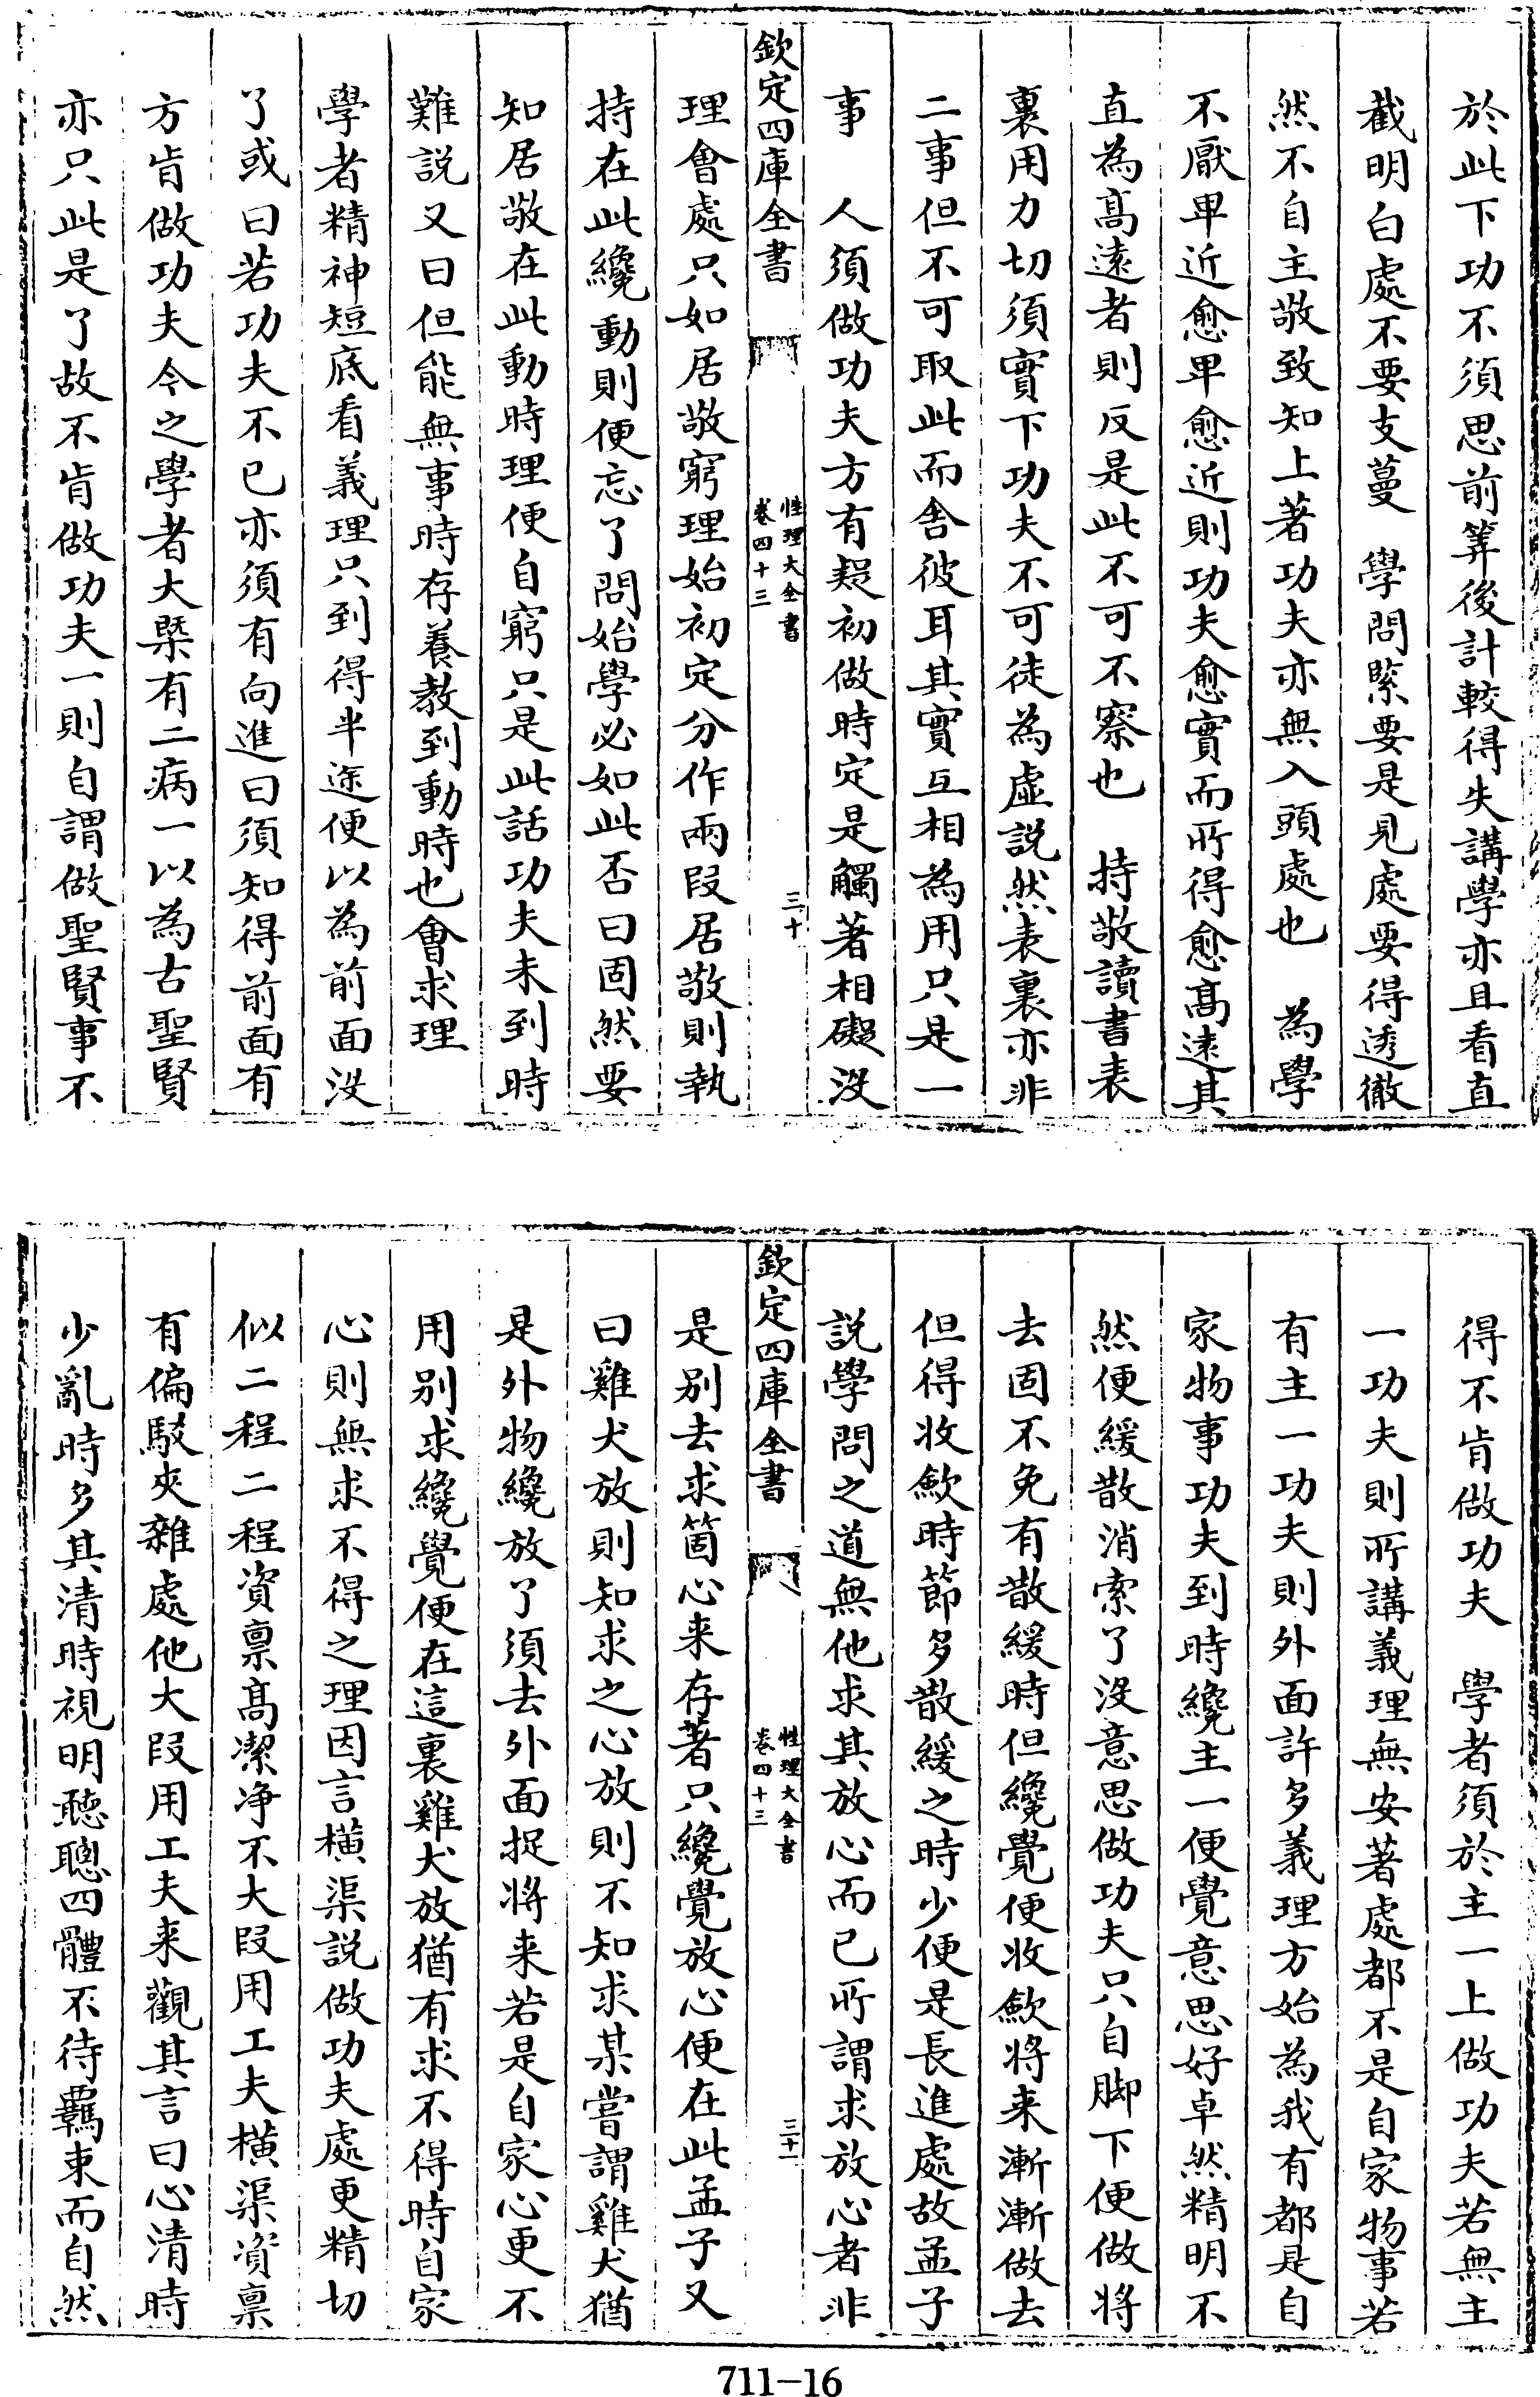 於此下功不須思前筭後計較得失講學亦且看直
截明白處不要支蔓　學問緊要是見處要得透徹
然不自主敬致知上著功夫亦無入頭處也　為學
不厭卑近愈卑愈近則功夫愈實而所得愈髙逺其
直為髙逺者則反是此不可不察也　持敬讀書表
裏用力切須實下功夫不可徒為虛說然表裏亦非
二事但不可取此而舎彼耳其實互相為用只是一
事　人須做功夫方有疑初做時定是觸著相礙没
欽定四庫全書
性理大全書
卷四十三
三十
理會處只如居敬窮理始初定分作兩段居敬則執
持在此纔動則便忘了問始學必如此否曰固然要
知居敬在此動時理便自窮只是此話功夫未到時
難說又曰但能無事時存養教到動時也會求理
學者精神短底看義理只到得半途便以為前面没
了或曰若功夫不已亦須有向進曰須知得前面有
方肯做功夫今之學者大槩有二病一以為古聖賢
亦只此是了故不肯做功夫一則自謂做聖賢事不
得不肯做功夫　學者須於主一上做功夫若無主
一功夫則所講義理無安著處都不是自家物事若
有主一功夫則外面許多義理方始為我有都是自
家物事功夫到時纔主一便覺意思好卓然精明不
然便緩散消索了没意思做功夫只自脚下便做將
去固不免有散緩時但纔覺便收歛將来漸漸做去
但得收歛時節多散緩之時少便是長進處故孟子
說學問之道無他求其放心而已所謂求放心者非
欽定四庫全書
性理大全書
卷四十三
三十一
是别去求箇心来存著只纔覺放心便在此孟子又
曰雞犬放則知求之心放則不知求某嘗謂雞犬猶
是外物纔放了須去外面捉將来若是自家心更不
用别求纔覺便在這裏雞犬放猶有求不得時自家
心則無求不得之理因言橫渠說做功夫處更精切
似二程二程資禀髙潔净不大段用工夫橫渠資禀
有偏駁夾雜處他大段用工夫来觀其言曰心清時
少亂時多其清時視明聽聰四體不待羈束而自然
711-16